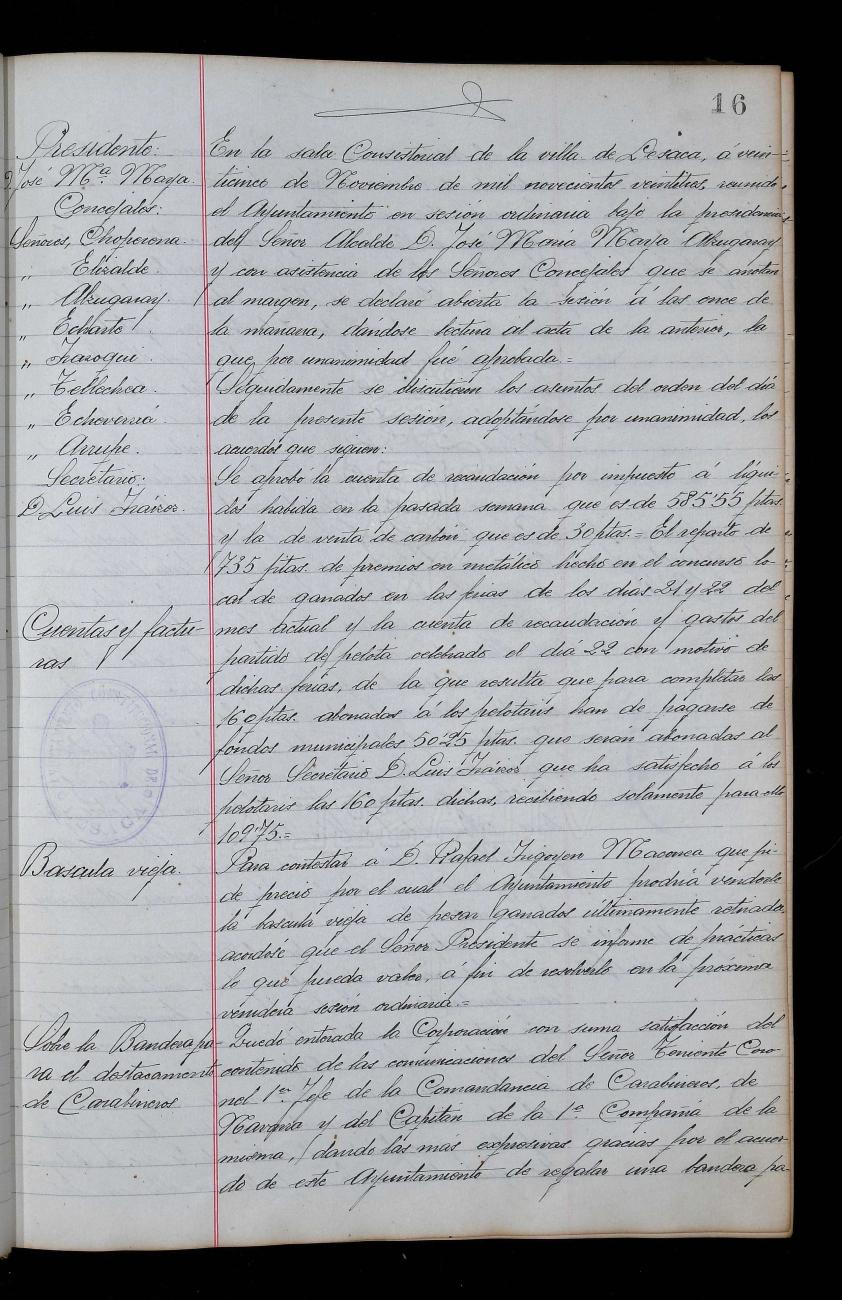 16
Presidente:
D. José Mª. Marja.
Concejales:
Señores, Choperena.
„ Elizalde.
„ Alzugaray.
„ Echarte.
„ Irazoqui.
„ Tellechea.
„ Echeverría.
„ Arrupe.
Secretario:
D. Luis Iráizoz.
En la sala Consistorial de la villa de Lesaca, á vein-
ticinco de Noviembre de mil novecientos veintitres, reunido
el Ayuntamiento en sesión ordinaria bajo la presidencia
del Señor Alcalde D. José María Marja Alzugaray
y con asistencia de los Señores Concejales que se anotan
al margen, se declaró abierta la sesión á las once de
la mañana, dándose lectura al acta de la anterior, la
que por unanimidad fue aprobada.=
Seguidamente se discutieron los asuntos del orden del día
de la presente sesión, adoptándose por unanimidad, los
acuerdos que siguen:
Cuentas y factu-
ras
Se aprobó la cuenta de recaudación por impuesto á líqui-
dos habida en la pasada semana que es de 585'55 ptas.
y la de venta de carbón que es de 30 ptas.= El reparto de
735 ptas. de premios en metálico hecho en el concurso lo-
cal de ganados en las ferias de los días 21 y 22 del
mes actual y la cuenta de recaudación y gastos del
partido de pelota celebrado el día 22 con motivo de
dichas ferias, de la que resulta que para completar las
160 ptas. abonadas á los pelotaris han de pagarse de
fondos municipales 50'25 ptas. que serán abonadas al
Señor Secretario D. Luis Iráizoz que ha satisfecho á los
pelotaris las 160 ptas. dichas, recibiendo solamente para ello
109'75.=
Bascula vieja.
Para contestar á D. Rafael Irigoyen Macorea que pi-
de precio por el cual el Ayuntamiento podría venderle
la bascula vieja de pesar ganados últimamente retirada,
acordóse que el Señor Presidente se informe de prácticas
lo que pueda valer, á fin de resolverlo en la próxima
venidera sesión ordinaria.=
Sobre la Bandera pa-
ra el destacamento
de Carabineros
Quedó enterada la Corporación con suma satisfacción del
contenido de las comunicaciones del Señor Teniente Coro-
nel 1er. Jefe de la Comandancia de Carabineros, de
Navarra y del Capitán de la 1ª. Compañía de la
misma, dando las mas expresivas gracias por el acuer-
do de este Ayuntamiento de regalar una bandera pa-